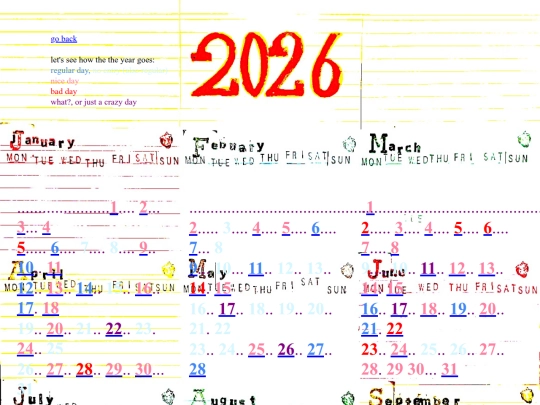 go back
2026
let's see how the the year goes:
regular day,
nice day
bad day
what?, or just a crazy day
January Febuary March
MON TUE WED THU FRI SAT SUN MON TUE WED THU FRI SAT SUN MON TUE WED THU FRI SAT SUN
.....................1... 2... 1
3... 4 2.... 3... 4.... 5.... 6.... 2.... 3.... 4.... 5.... 6....
5.... 6... 7... 8... 9... 7... 8 7... 8
10.. 11 11.. 12.. 13.. 11.. 12.. 13..
April May June
12.. 13.. 14.. 16.. 14.. 15
MON TUE WED THU FRI SAT SUN
17.. 18 16.. 17.. 18.. 19.. 20.. 16.. 17.. 18.. 19.. 20..
19.. 20.. 21.. 22.. 23.. 21.. 22 21.. 22
24.. 25 23.. 24.. 25.. 26.. 27.. 23.. 24.. 25.. 26.. 27..
26.. 27.. 28.. 29.. 30... 28 28.. 29 30... 31
31
July August September